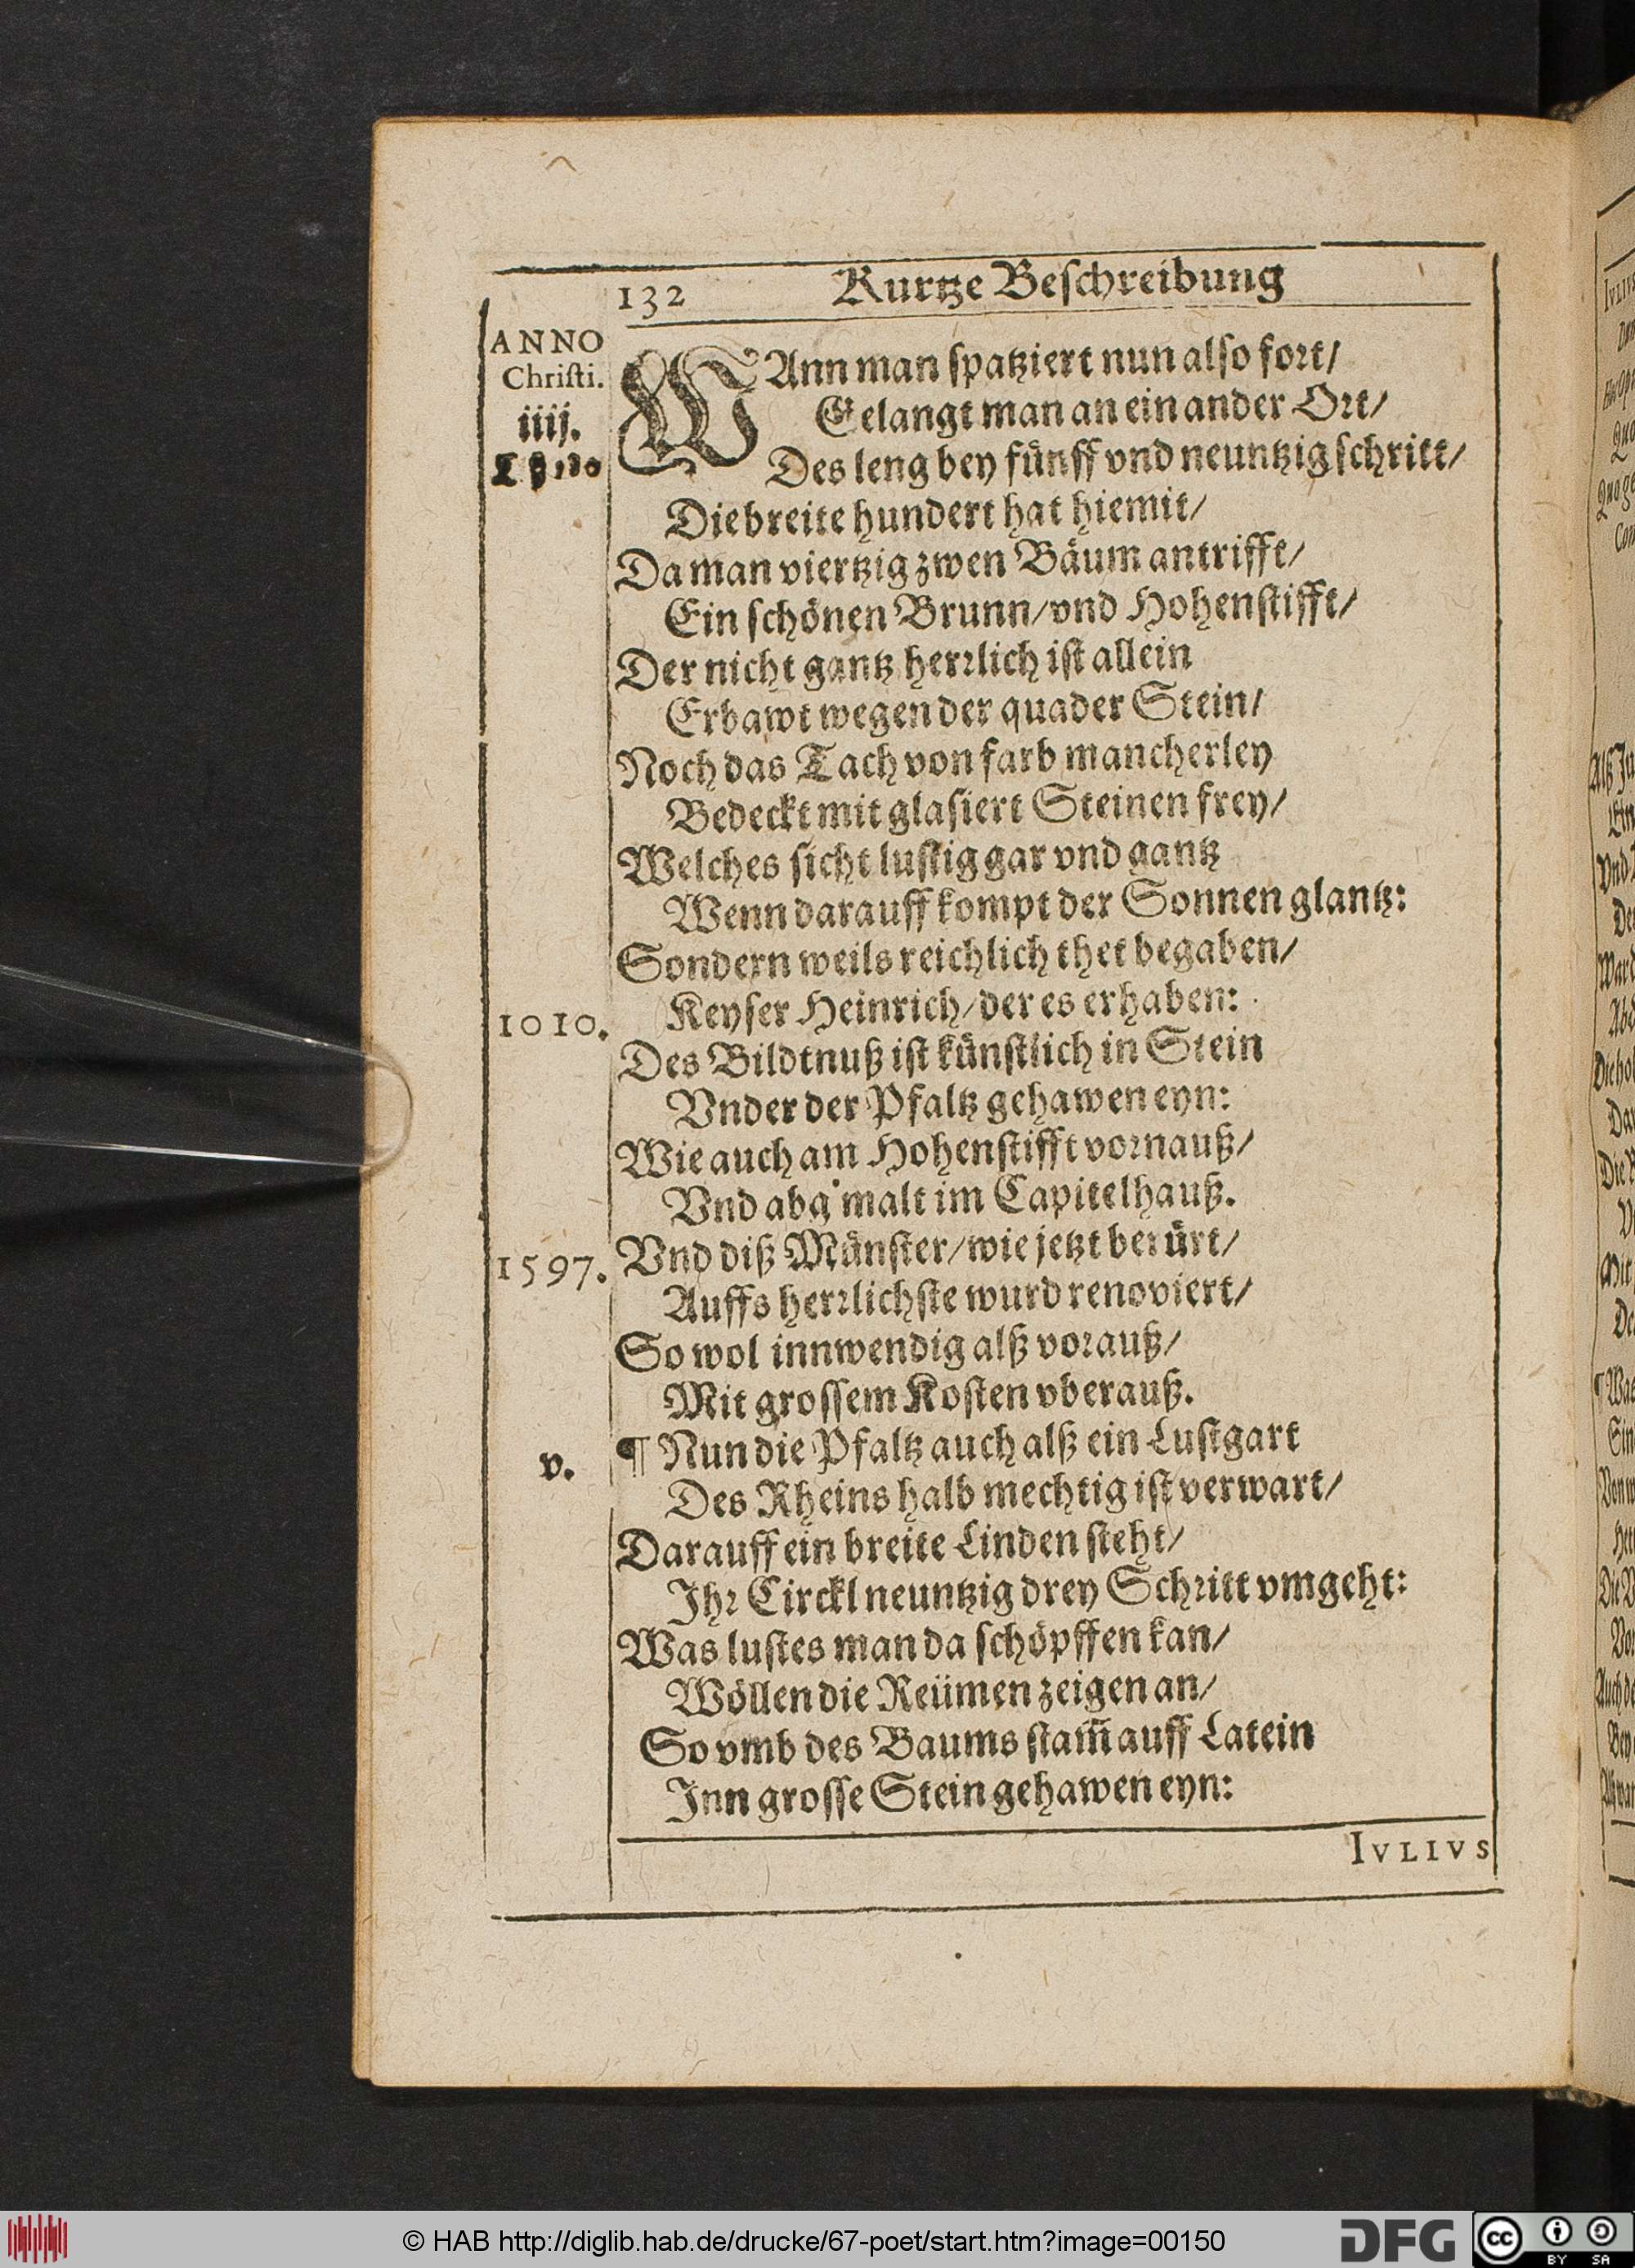 132 Kurtze Beſchreibung
ANNO
Chriſti.
iiij.
WAnn man ſpatziert nun alſo fort/
Gelangt man an ein ander Ort/
Des leng bey fünff vnd neuntzig ſchritt/
Die breite hundert hat hiemit/
Da man viertzig zwen Bäum antrifft/
Ein ſchönen Brunn/ vnd Hohenſtifft/
Der nicht gantz herrlich iſt allein
Erbawt wegen der quader Stein/
Noch das Tach von farb mancherley
Bedeckt mit glaſiert Steinen frey/
Welches ſicht luſtig gar vnd gantz
Wenn darauff kompt der Sonnen glantz:
Sondern weils reichlich thet begaben/
1010. Keyſer Heinrich/ der es erhaben:
Des Bildtnuß iſt künſtlich in Stein
Vnder der Pfaltz gehawen eyn:
Wie auch am Hohenſtifft vornauß/
Vnd abg'malt im Capitelhauß.
1597. Vnd diß Münſter/ wie jetzt berürt/
Auffs herrlichſte wurd renoviert/
So wol innwendig alß vorauß/
Mit groſſem Koſten vberauß.
v. ¶ Nun die Pfaltz auch alß ein Luſtgart
Des Rheins halb mechtig iſt verwart/
Darauff ein breite Linden ſteht/
Ihr Circkl neuntzig drey Schritt vmgeht:
Was luſtes man da ſchöpffen kan/
Wöllen die Reümen zeigen an/
So vmb des Baums ſtam̃ auff Latein
Inn groſſe Stein gehawen eyn:
IVLIVS
© HAB http://diglib.hab.de/drucke/67-poet/start.htm?image=00150
DFG
cc BY SA